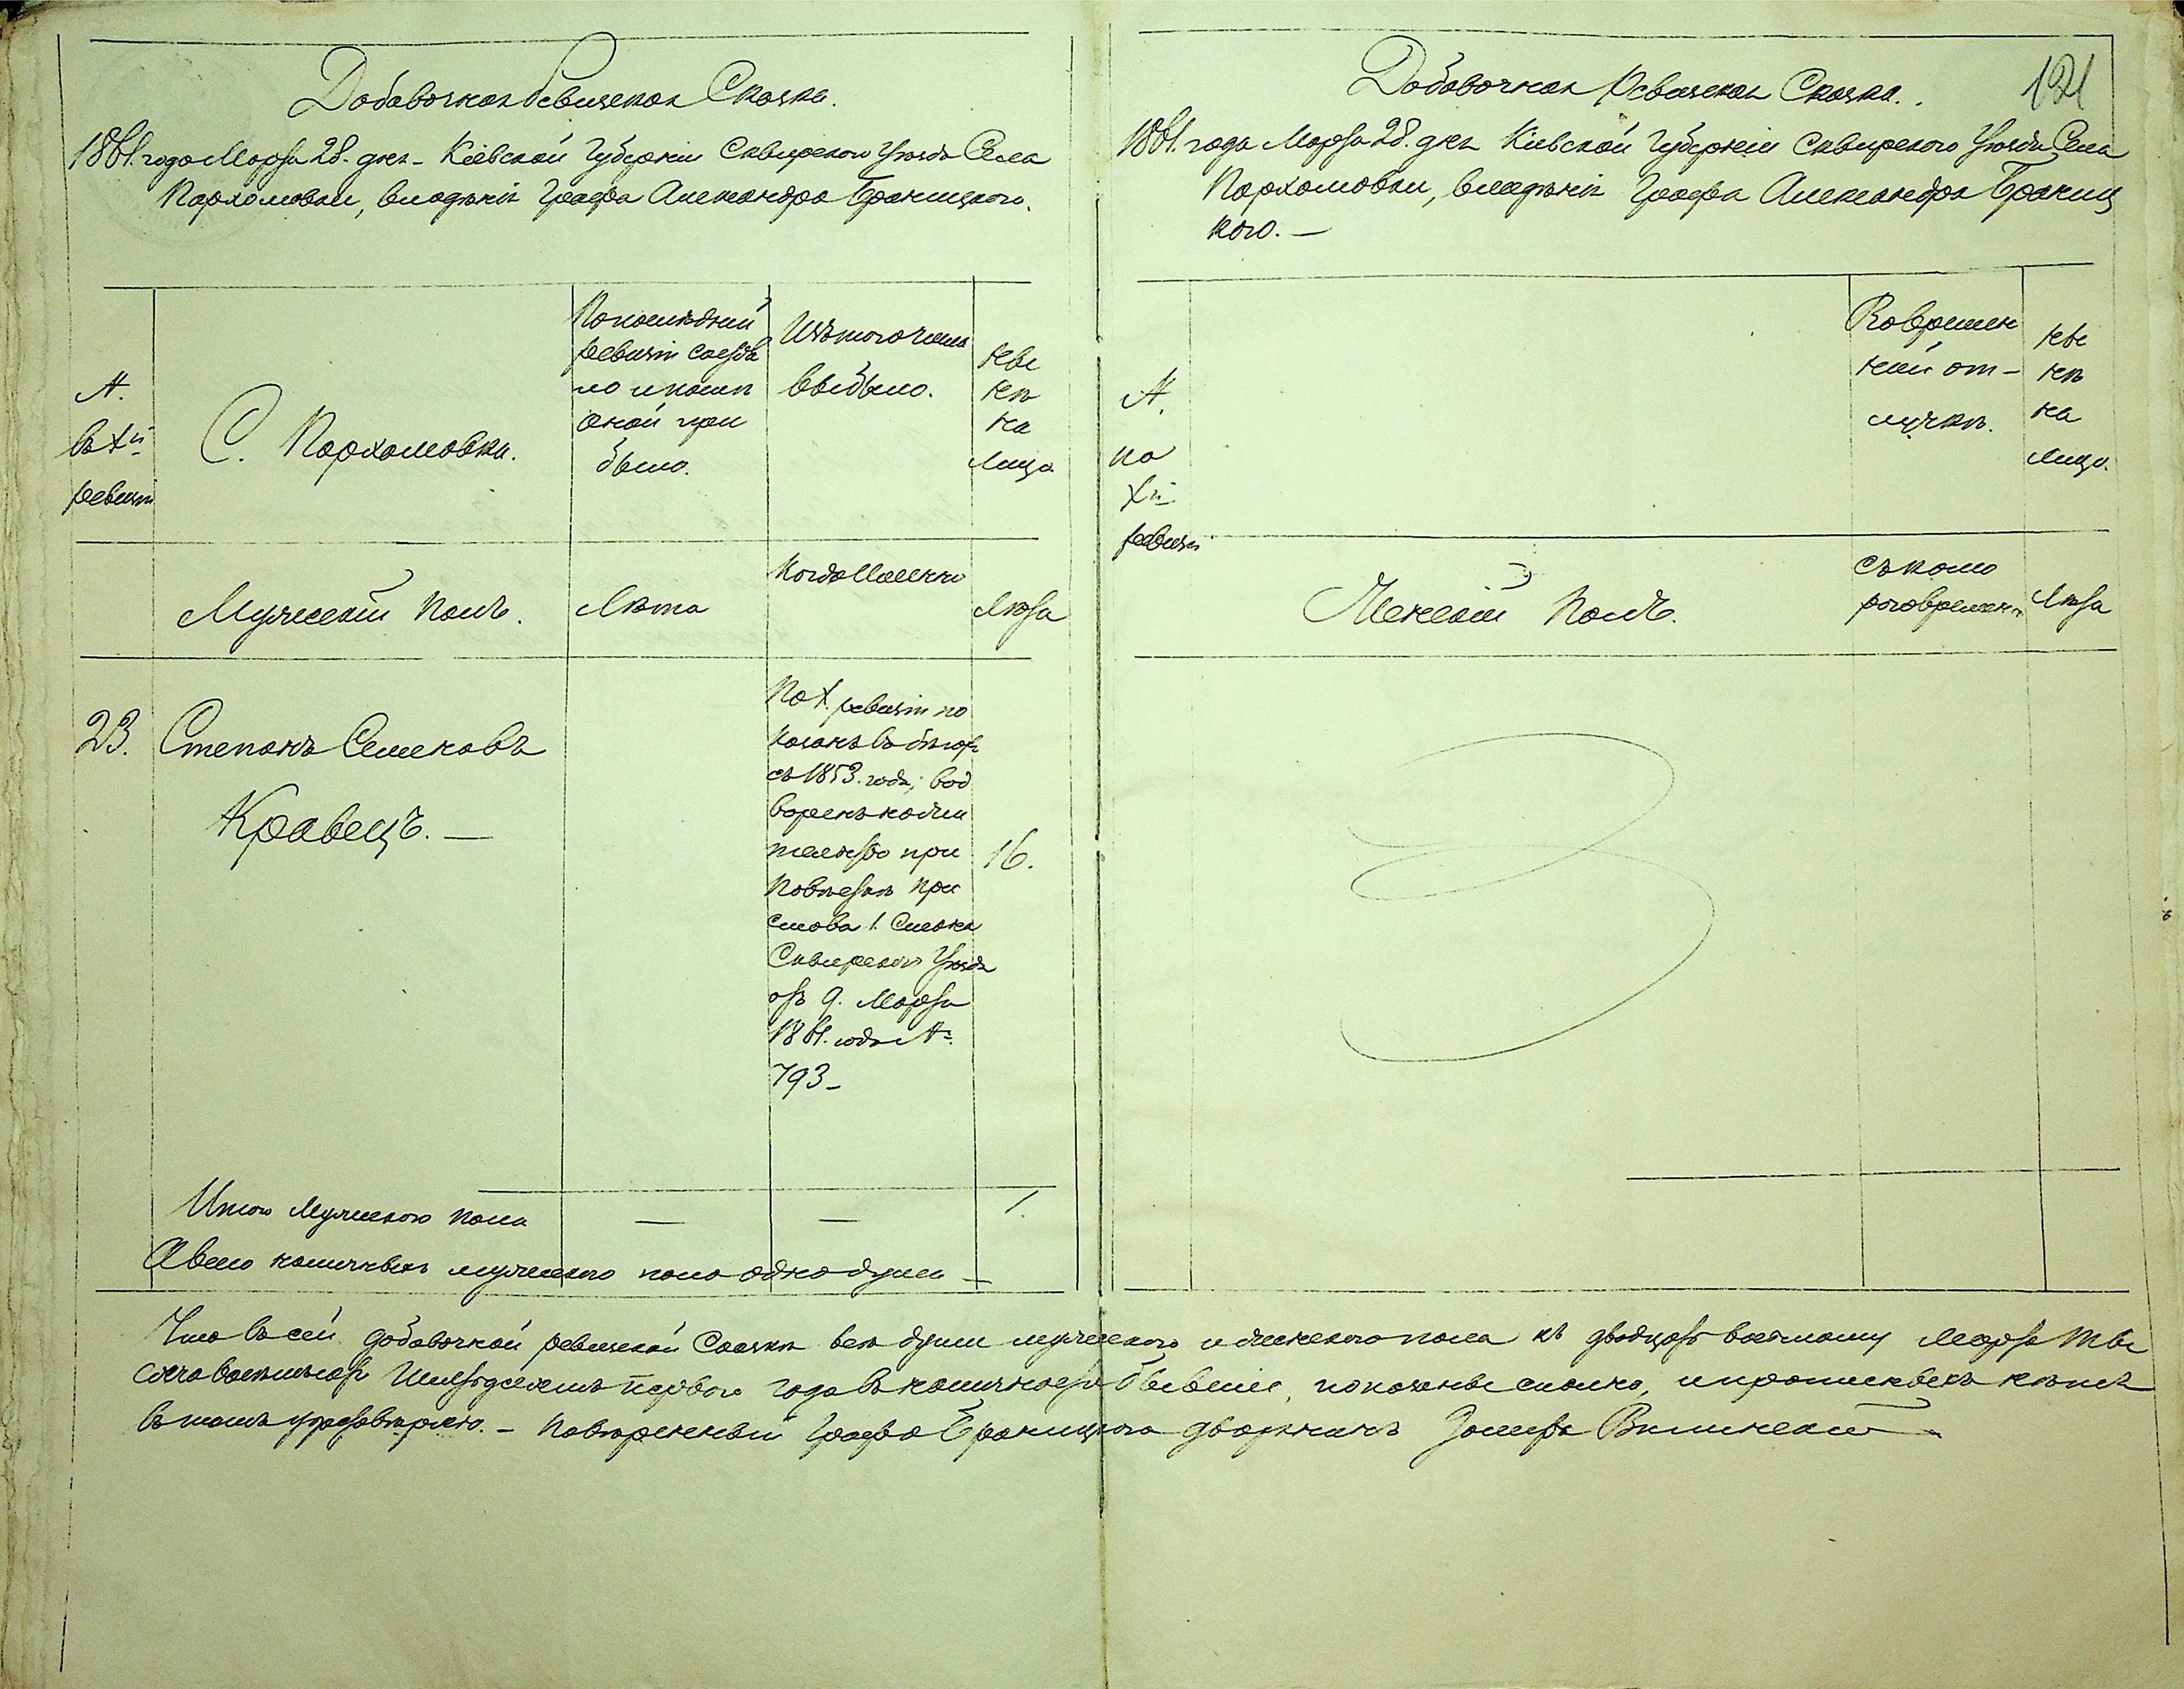 Добавочная Ревизская Сказка.
1861. года Марта 28. дня – Кіевской Губерніи Сквирского Уѣзда Села
Пархомовки, владѣнія Графа Александра Браницкого.
№.
въ Xй
ревизіи
С. Пархомовка.
По послѣдней
ревизіи состоя
ло и послѣ
оной при
было.
Изъ того числа
выбыло.
Нынѣ
на
лицо
Мужескій полъ.
Лѣта
Когда именно
Лѣта
23.
Степанъ Семеновъ
Кравецъ. —
По X. ревизіи по
казанъ въ бѣгахъ
съ 1853. года; вод
воренъ на жи
тельство при
повѣсткѣ При
става 1. Стана
Сквирского Уѣзда
отъ 9. Марта
1861. года №.
793 –
16.
Итого мужеского пола — — 1.
А всего наличныхъ мужеского пола одна душа —
Добавочная Ревизская Сказка.
121
1861. года Марта 28. дня Кіевской Губерніи Сквирского Уѣзда Села
Пархомовки, владѣнія Графа Александра Браниц
кого. —
№.
по
Xй
ревизіи
Во времен
ной от-
лучкѣ.
Ны
нѣ
на
лицо.
Женскій полъ.
съ кото
рого времени
Лѣта
Что въ сей добавочной ревизской Сказкѣ всѣ души мужеского и женского пола къ двадцать восьмому Марта ты
сяча восемьсотъ шестьдесятъ первого года въ наличности бывшіе, показаны сполна, и прописныхъ нѣтъ
въ томъ удостовѣряю. – Повѣренный Графа Браницкого дворянинъ